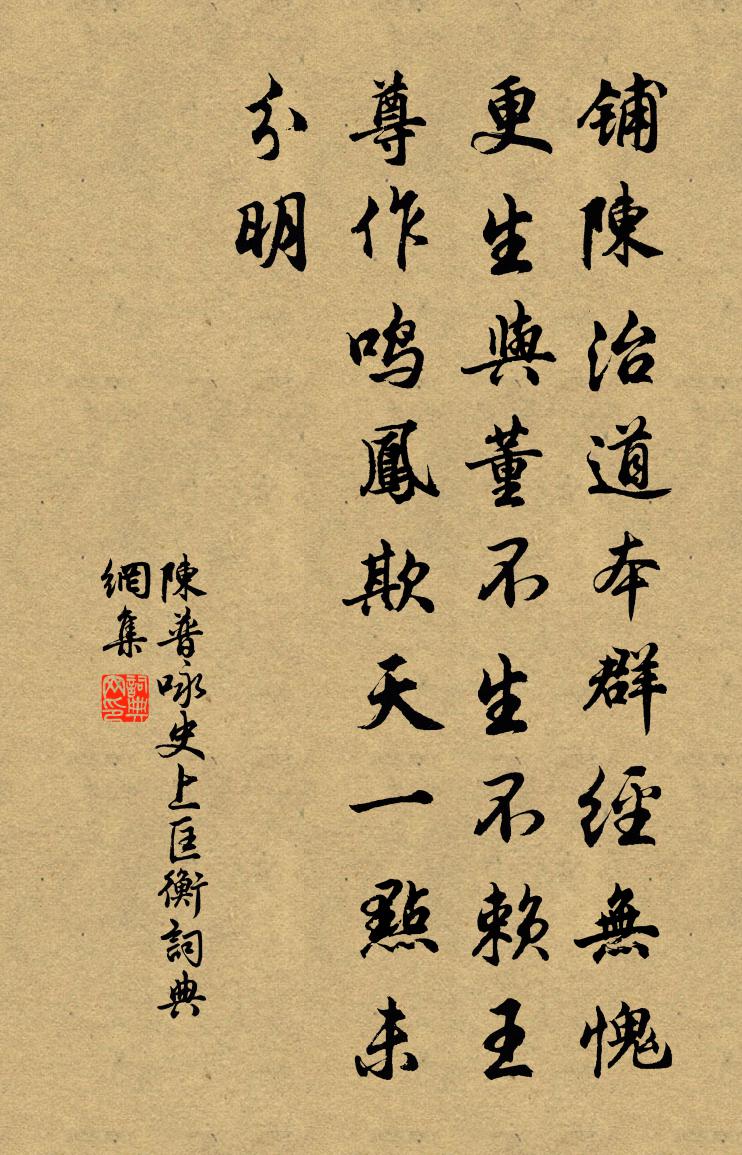 鋪陳治道本群經無愧
更生與董不生不賴王
尊作鸣鳳欺天一點未
分明
陳普咏史上匡衡詞典
網集
詞典文印